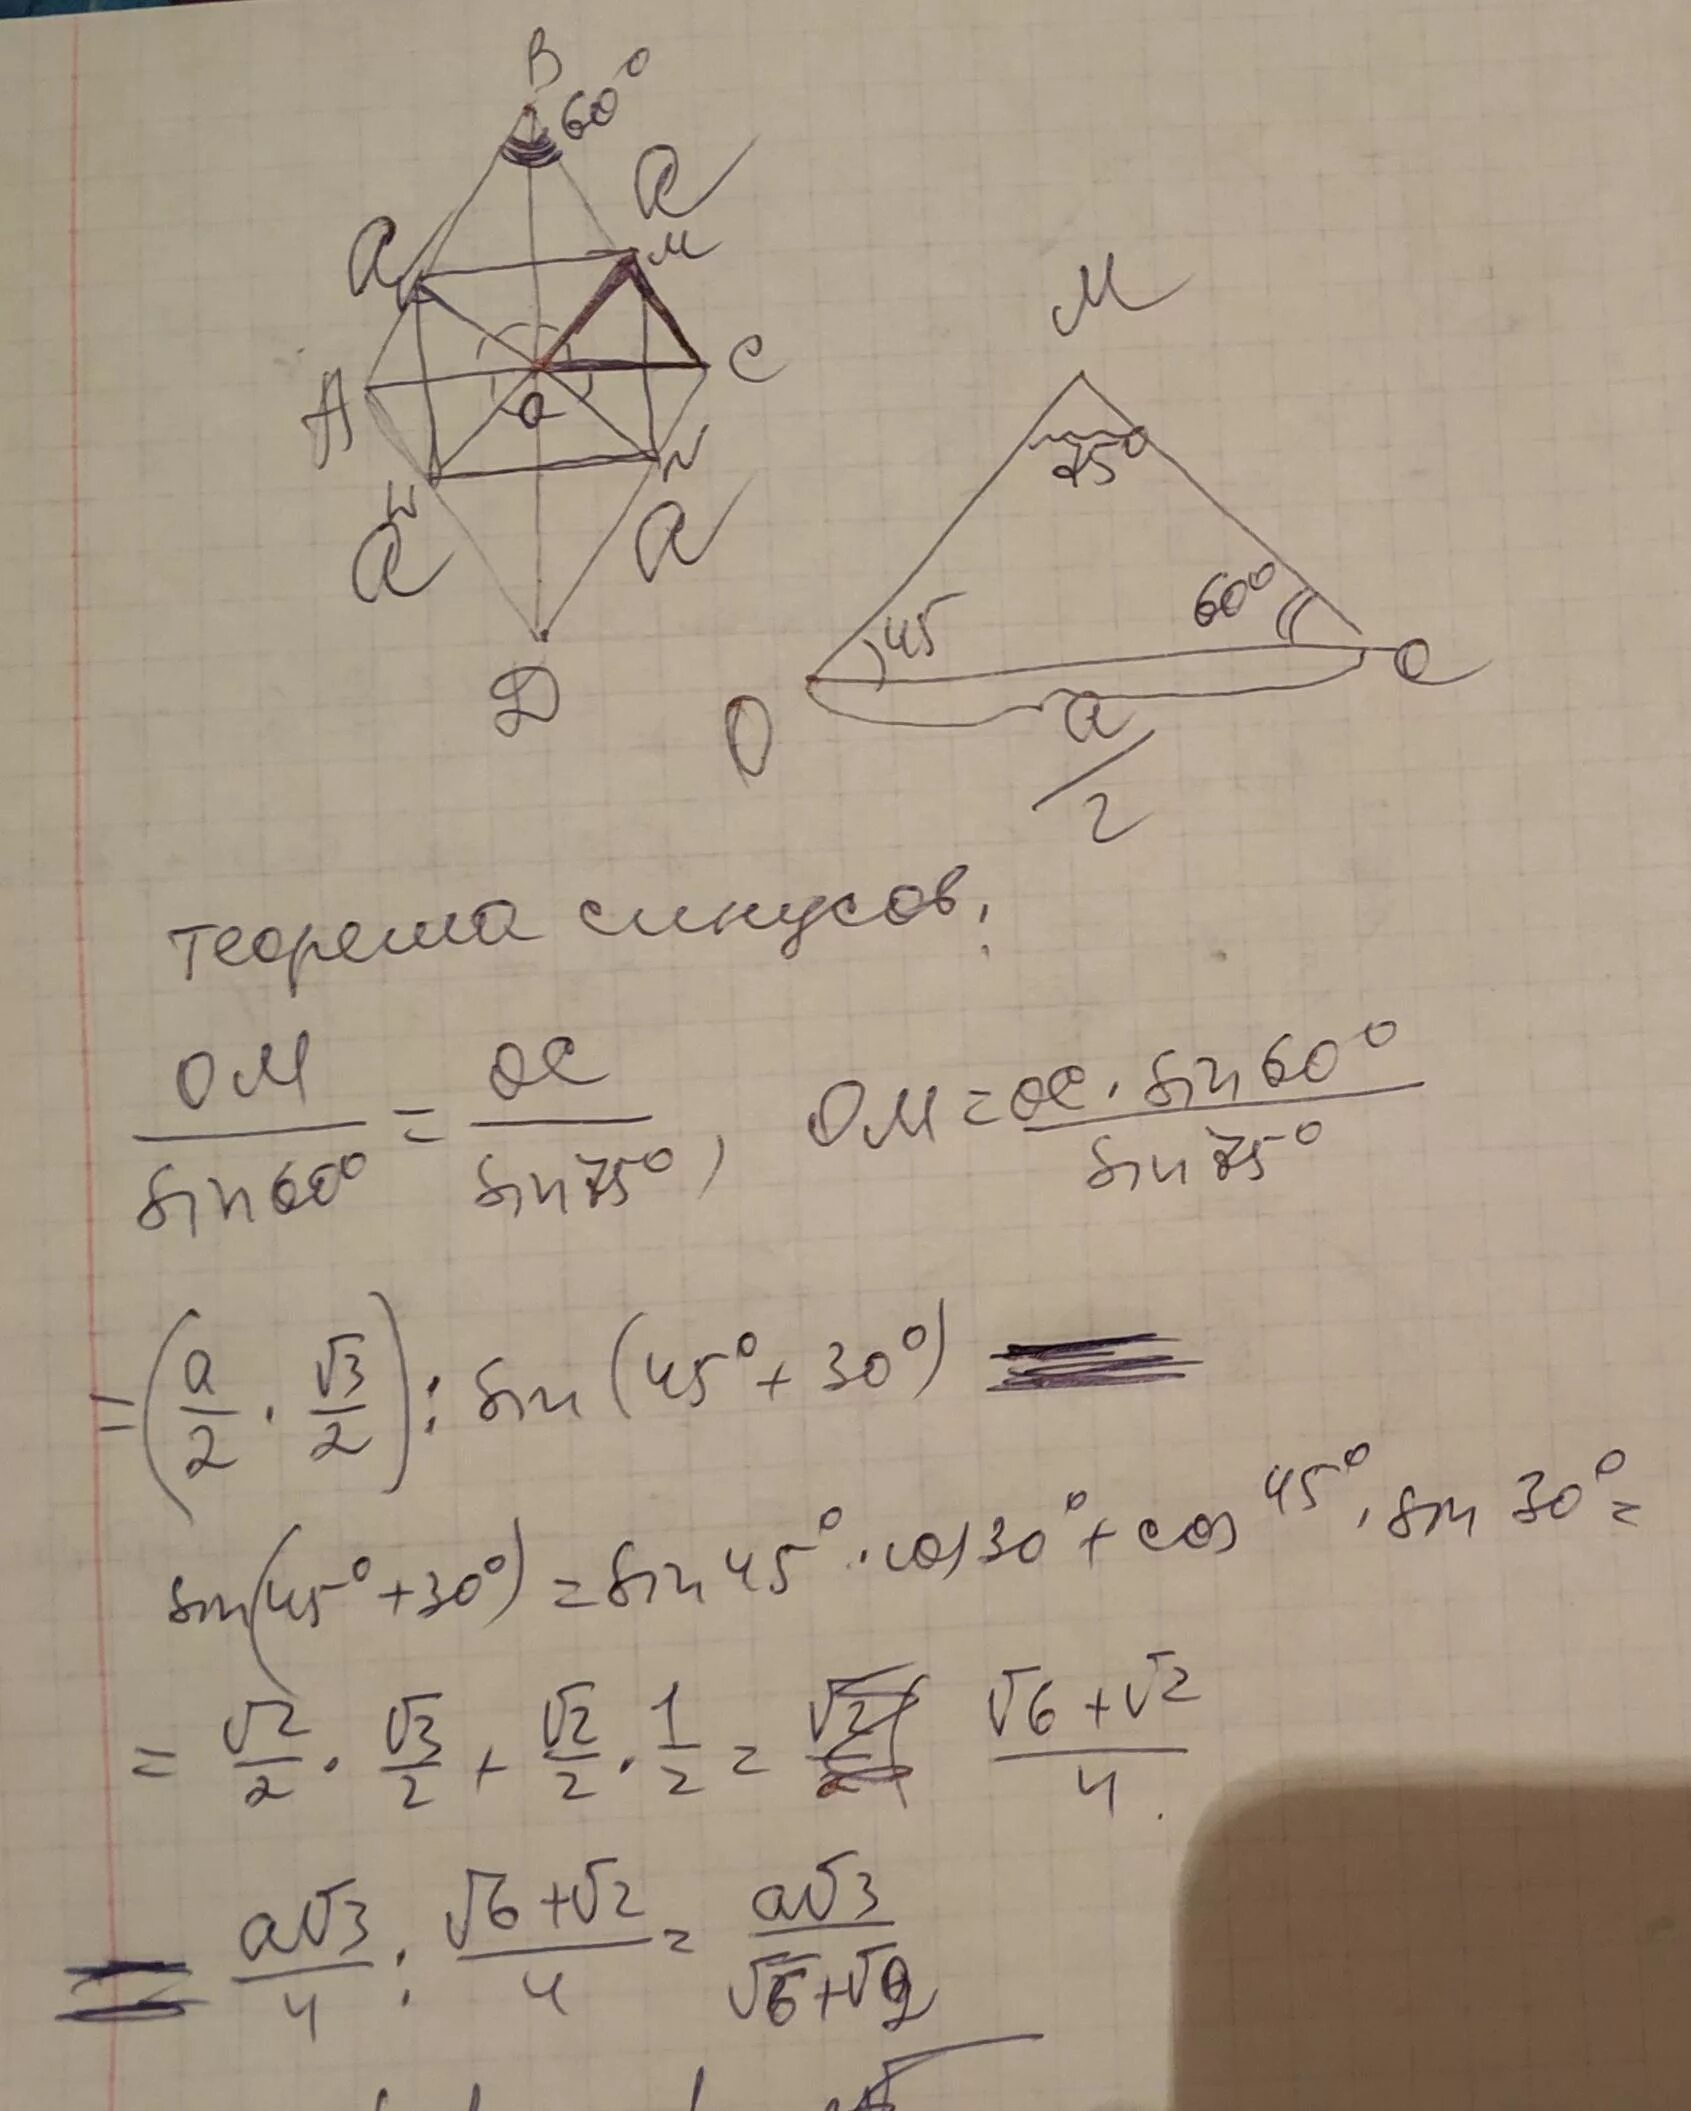 B
60°
a
a
M
A
C
a
N
a
a
D
M
75°
45
60°
O
C
a/2
теорема синусов:
OM/sin60° = OC/sin75°, OM = OC · sin60°/sin75°
= (a/2 · √3/2) : sin(45° + 30°)
sin(45° + 30°) = sin45° · cos30° + cos45° · sin30° =
= √2/2 · √3/2 + √2/2 · 1/2 = √6 + √2/4.
a√3/4 : √6 + √2/4 = a√3/√6 + √2